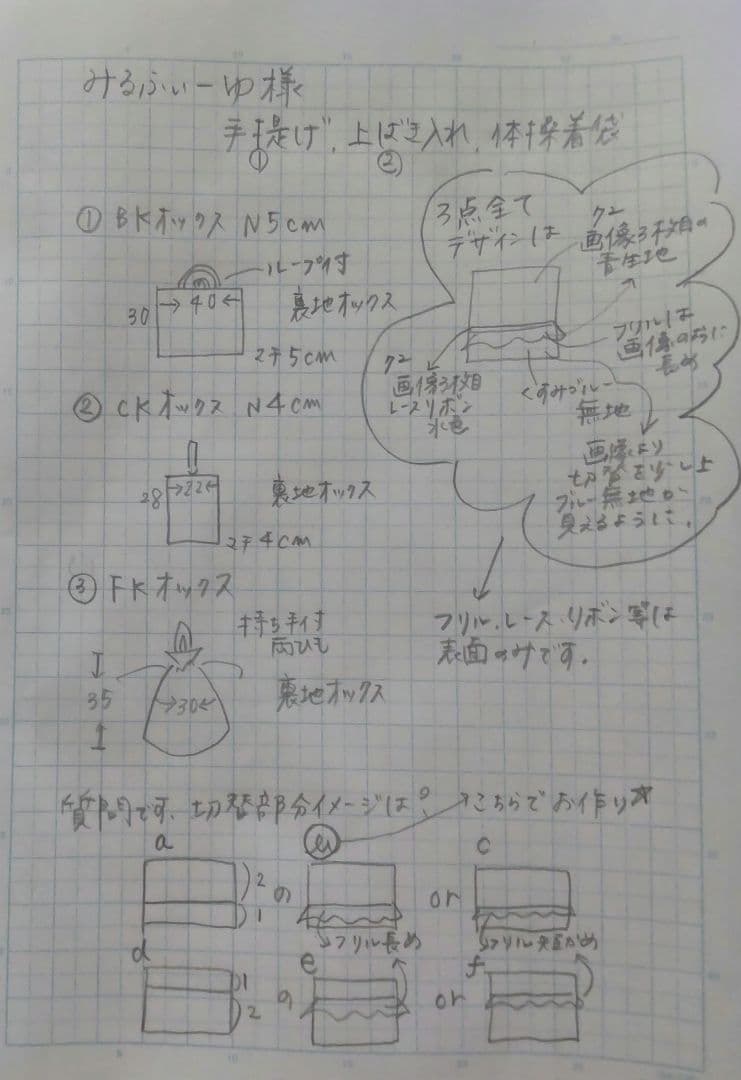 みるふぃーゆ様
手提げ、上ばき入れ、体操着袋
① ②
① BKオックス N5cm
ループ付
30
40
裏地オックス
マチ5cm
② CKオックス N4cm
28
22
裏地オックス
マチ4cm
③ FKオックス
持ち手付
両ひも
35
30
裏地オックス
3点全て
デザインは
画像3枚目の
青生地
フリルは
画像のように
長め
画像3枚目
レースリボン
水色
くすみブルー
無地
画像より
切替を少し上
ブルー無地が
見えるように。
フリル、レース、リボン等は
表面のみです。
質問です、切替部分イメージは?
こちらでお作り
a
2
1
の
フリル長め
or
c
フリル短かめ
d
1
2
の
e
or
f